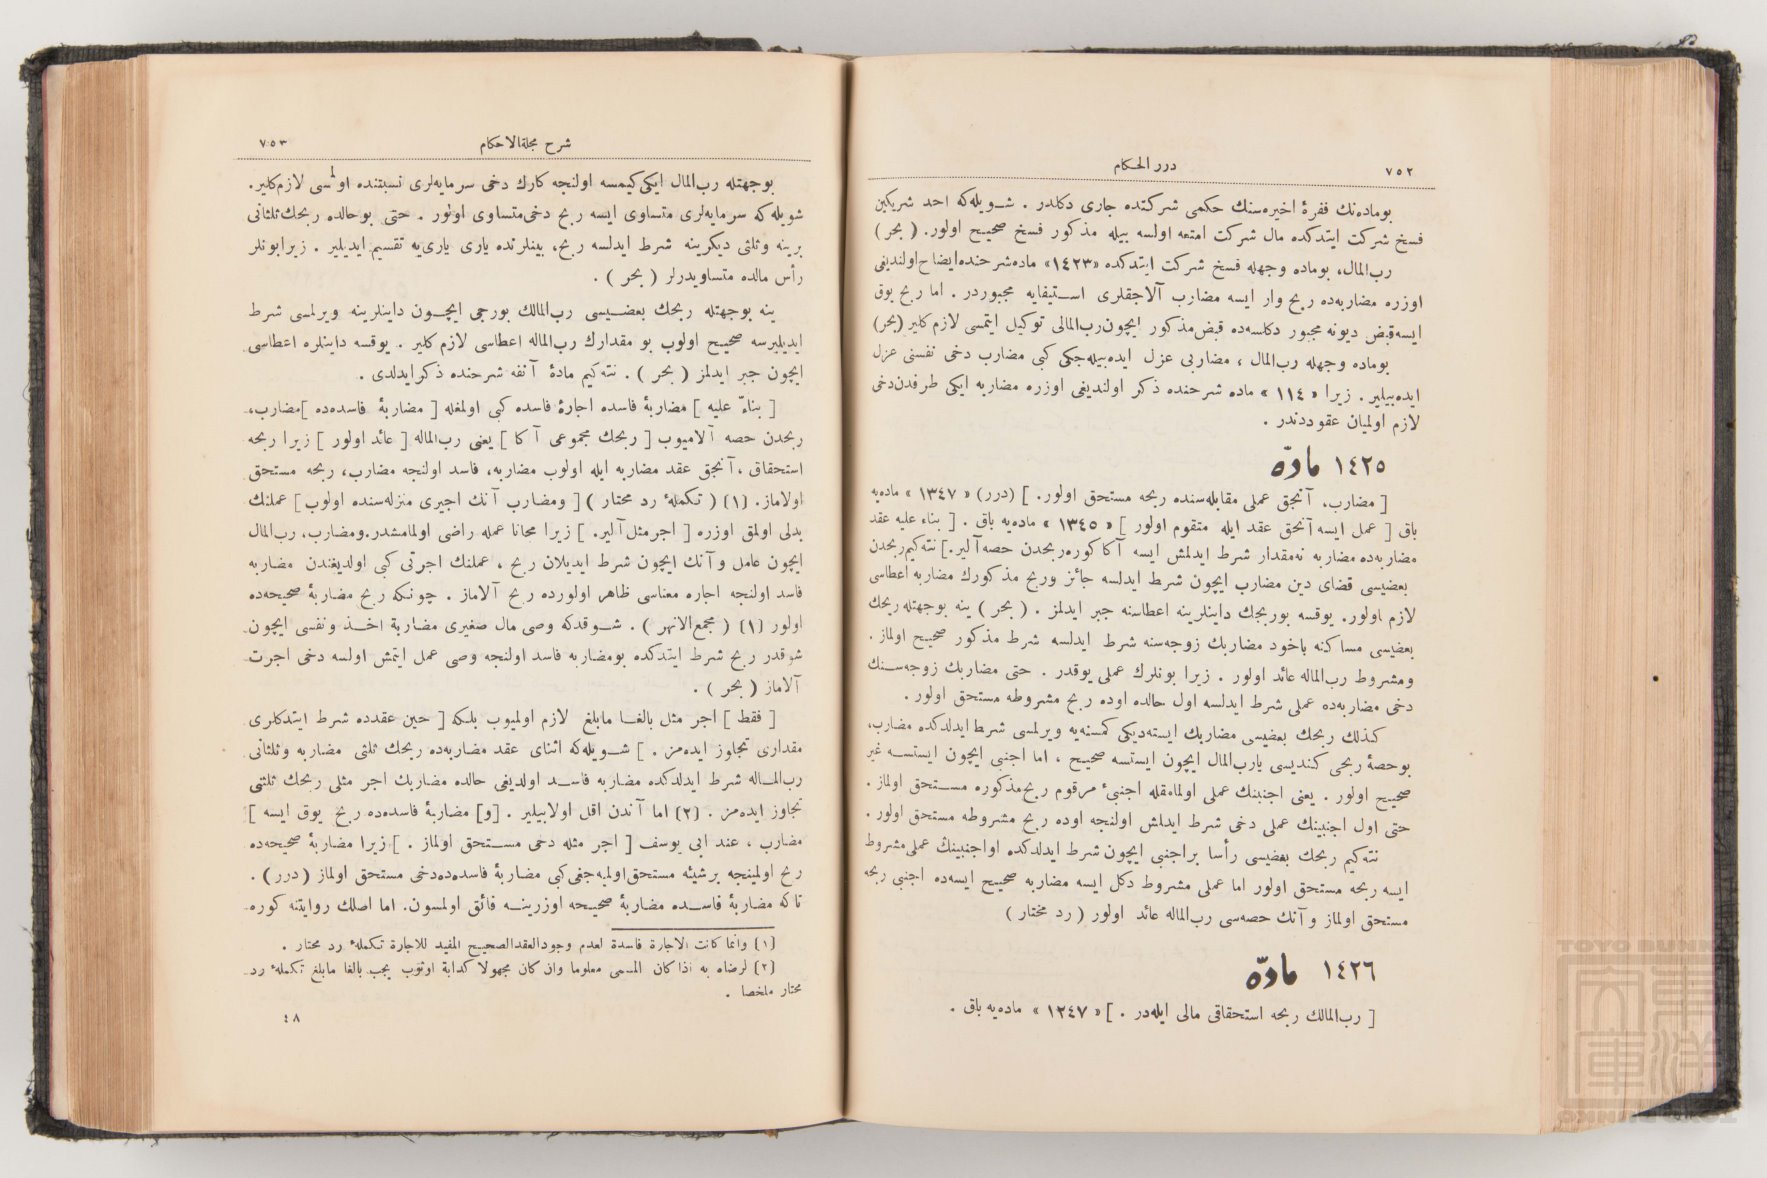 ٧٥٢
درر الحكام
بوماده‌نك فقرهٔ اخیره‌سنك حكمی شركتده جاری دكلدر . شویله‌كه احد شریكین
فسخ شركت ایتدكده مال شركت امتعه اولسه بیله مذكور فسخ صحیح اولور. ( بحر )
رب‌المال، بوماده وجهله فسخ شركت ایتدكده «١٤٢٣» ماده شرحنده ایضاح اولندیغی
اوزره مضاربه‌ده ربح وار ایسه مضارب آلاجقلری استیفایه مجبوردر . اما ربح یوق
ایسه قبض دیونه مجبور دكلسه‌ده قبض مذكور ایچون رب‌المالی توكیل ایتمسی لازم كلیر (بحر)
بوماده وجهله رب‌المال ، مضاربی عزل ایده‌بیله‌جكی كبی مضارب دخی نفسنی عزل
ایده‌بیلیر . زیرا « ١١٤ » ماده شرحنده ذكر اولندیغی اوزره مضاربه ایكی طرفدن دخی
لازم اولمیان عقوددندر .
١٤٢٥ مادّه
[ مضارب، آنجق عملی مقابله‌سنده ربحه مستحق اولور. ] (درر) « ١٣٤٧ » ماده‌یه
باق [ عمل ایسه آنجق عقد ایله متقوم اولور ] « ١٣٤٥ » ماده‌یه باق . [ بناء علیه عقد
مضاربه‌ده مضاربه نه‌مقدار شرط ایدلمش ایسه آكا كوره ربحدن حصه آلیر.] نته‌كیم ربحدن
بعضیسی قضای دین مضارب ایچون شرط ایدلسه جائز وربح مذكورك مضاربه اعطاسی
لازم اولور. یوقسه بوربحك داینلرینه اعطاسنه جبر ایدلمز . ( بحر ) ینه بوجهتله ربحك
بعضیسی مساكنه یاخود مضاربك زوجه‌سنه شرط ایدلسه شرط مذكور صحیح اولماز .
ومشروط رب‌الماله عائد اولور . زیرا بونلرك عملی یوقدر . حتی مضاربك زوجه‌سنك
دخی مضاربه‌ده عملی شرط ایدلسه اول حالده اوده ربح مشروطه مستحق اولور .
كذلك ربحك بعضیسی مضاربك ایسته‌دیكی كمسنه‌یه ویرلمسی شرط ایدلدكده مضارب،
بوحصهٔ ربحی كندیسی یارب‌المال ایچون ایستسه صحیح ، اما اجنبی ایچون ایستسه غیر
صحیح اولور . یعنی اجنبینك عملی اولمامقله اجنبیٔ مرقوم ربح مذكوره مستحق اولماز .
حتی اول اجنبینك عملی دخی شرط ایدلمش اولنجه اوده ربح مشروطه مستحق اولور .
نته‌كیم ربحك بعضیسی رأسا براجنبی ایچون شرط ایدلدكده اواجنبینك عملی مشروط
ایسه ربحه مستحق اولور اما عملی مشروط دكل ایسه مضاربه صحیح ایسه‌ده اجنبی ربحه
مستحق اولماز و آنك حصه‌سی رب‌الماله عائد اولور ( رد مختار )
١٤٢٦ مادّه
[ رب‌المالك ربحه استحقاقی مالی ایله‌در . ] « ١٣٤٧ » ماده‌یه باق .
شرح مجلة‌الاحكام
٧٥٣
بوجهتله رب‌المال ایكی كیمسه اولنجه كارك دخی سرمایه‌لری نسبتنده اولمسی لازم كلیر.
شویله‌كه سرمایه‌لری متساوی ایسه ربح دخی متساوی اولور . حتی بوحالده ربحك ثلثانی
برینه وثلثی دیكرینه شرط ایدلسه ربح، بینلرنده یاری یاری‌یه تقسیم ایدیلیر . زیرا بونلر
رأس مالده متساویدرلر ( بحر ) .
ینه بوجهتله ربحك بعضیسی رب‌المالك بورجی ایچون داینلرینه ویرلمسی شرط
ایدیلیرسه صحیح اولوب بو مقدارك رب‌الماله اعطاسی لازم كلیر . یوقسه داینلره اعطاسی
ایچون جبر ایدلمز ( بحر ) . نته‌كیم مادهٔ آنفه شرحنده ذكر ایدلدی .
[ بناءً علیه ] مضاربهٔ فاسده اجارهٔ فاسده كبی اولمغله [ مضاربهٔ فاسده‌ده ] مضارب،
ربحدن حصه آلامیوب [ ربحك مجموعی آكا ] یعنی رب‌الماله [ عائد اولور ] زیرا ربحه
استحقاق ، آنجق عقد مضاربه ایله اولوب مضاربه، فاسد اولنجه مضارب، ربحه مستحق
اولاماز. (١) ( تكملهٔ رد مختار ) [ ومضارب آنك اجیری منزله‌سنده اولوب ] عملنك
بدلی اولمق اوزره [ اجر مثل آلیر. ] زیرا مجانا عمله راضی اولمامشدر. ومضارب، رب‌المال
ایچون عامل و آنك ایچون شرط ایدیلان ربح ، عملنك اجرتی كبی اولدیغندن مضاربه
فاسد اولنجه اجاره معناسی ظاهر اولورده ربح آلاماز . چونكه ربح مضاربهٔ صحیحه‌ده
اولور (١) ( مجمع‌الانهر ) . شوقدركه وصی مال صغیری مضاربة اخذ ونفسی ایچون
شو قدر ربح شرط ایتدكده بومضاربه فاسد اولنجه وصی عمل ایتمش اولسه دخی اجرت
آلاماز ( بحر ) .
[ فقط ] اجر مثل بالغا مابلغ لازم اولمیوب بلكه [ حین عقدده شرط ایتدكلری
مقداری تجاوز ایده‌مز . ] شویله‌كه اثنای عقد مضاربه‌ده ربحك ثلثی مضاربه وثلثانی
رب‌الماله شرط ایدلدكده مضاربه فاسد اولدیغی حالده مضاربك اجر مثلی ربحك ثلثنی
تجاوز ایده‌مز . (٢) اما آندن اقل اولابیلیر . [و] مضاربهٔ فاسده‌ده ربح یوق ایسه ]
مضارب ، عند ابی یوسف [ اجر مثله دخی مستحق اولماز . ] زیرا مضاربهٔ صحیحه‌ده
ربح اولمینجه برشیئه مستحق اولمیه‌جغی كبی مضاربهٔ فاسده‌ده دخی مستحق اولماز (درر) .
تاكه مضاربهٔ فاسده مضاربهٔ صحیحه اوزرینه فائق اولمسون. اما اصلك روایتنه كوره
(١) وانما كانت الاجارة فاسدة لعدم وجود العقد الصحیح المفید للاجارة تكملهٔ رد مختار .
(٢) لرضاه به اذا كان المسمی معلوما وان كان مجهولا كدابة اوثوب یجب بالغا مابلغ تكملهٔ رد
مختار ملخصا .
٤٨
TOYO BUNKO